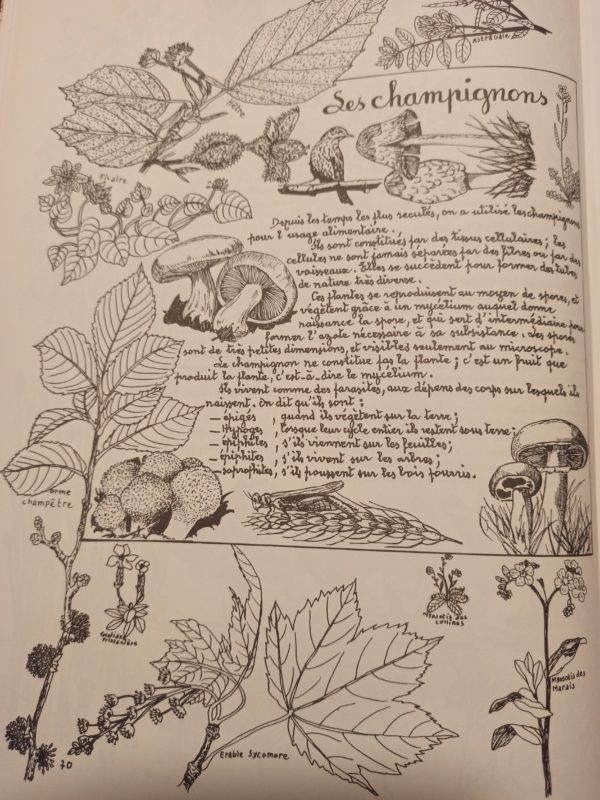 Astragale
Hêtre
Les champignons
Ficaire
Depuis les temps les plus seculés, on a utilisé les champignons
pour l'usage alimentaire.
Ils sont constitués par des tissus cellulaires; les
cellules ne sont jamais séparées par des fibres ou par des
vaisseaux. Elles se succèdent pour former des tubes
de nature très diverse.
Ces plantes se reproduisent au moyen de spores, et
végètent grâce à un mycélium auquel donne
naissance la spore, et qui sert d'intermédiaire pour
former l'azote nécessaire à sa subsistance. Les spores
sont de très petites dimensions, et visibles seulement au microscope.
Le champignon ne constitue pas la plante; c'est un fruit que
produit la plante, c'est-à-dire le mycélium.
Ils vivent comme des parasites, aux dépens des corps sur lesquels ils
naissent. On dit qu'ils sont:
_ épigés, quand ils végètent sur la terre;
_ Hypogés, lorsque leur cycle entier ils restent sous terre;
_ épiphiles, s'ils viennent sur les feuilles;
_ épiphites, s'ils vivent sur les arbres;
_ saprophites, s'ils poussent sur les bois pourris.
orme
champêtre
Gentiane
Printanière
Myosotis des
Collines
Myosotis des
Marais
Erable Sycomore
70